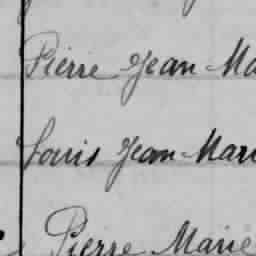 Pierre Jean-Ma
Louis Jean-Mari
Pierre Marie